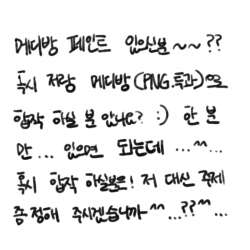 메디방 페인트 있으신분 ~~??
혹시 저랑 메디방(PNG.투과)으로
합작 하실 분 있나요? :) 한 분
만 ... 있으면 되는데 ...^^...
혹시 합작 하실분은! 저 대신 주제
좀 정해 주시겠습니까^^...??^^...